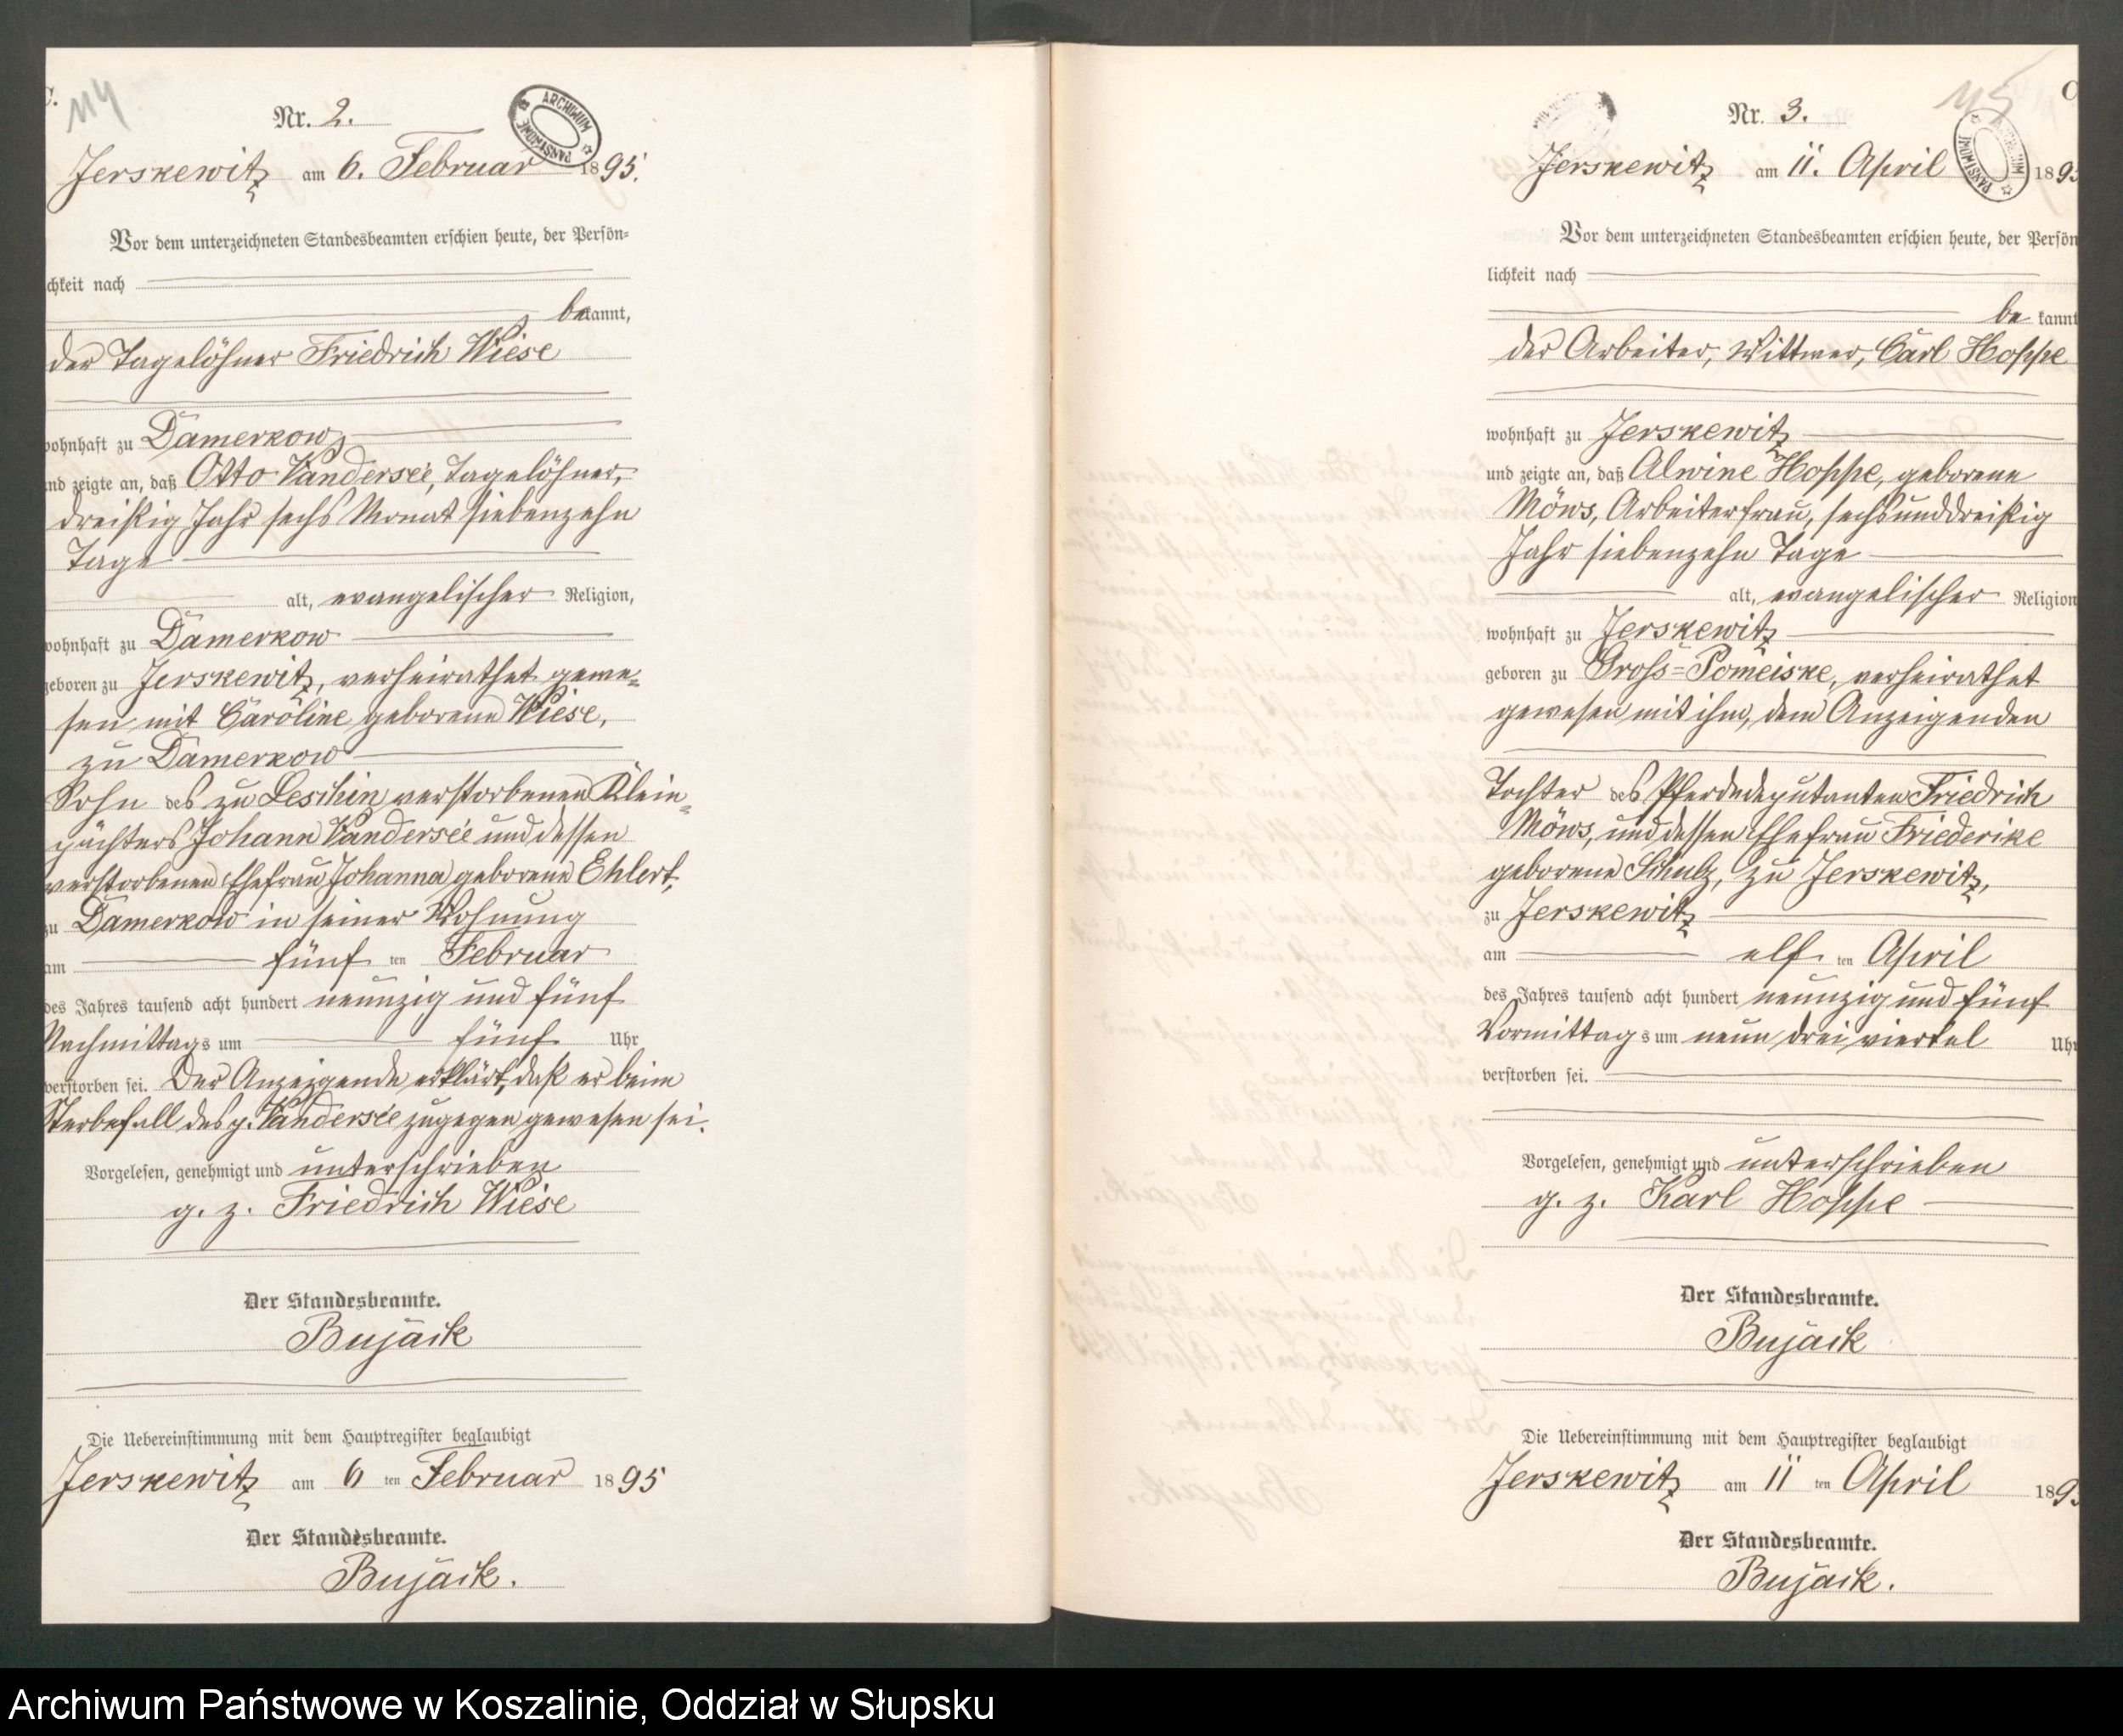 C.
114
Nr. 2.
ARCHIWUM PAŃSTWOWE
Jerskewitz am 6. Februar 1895.
Vor dem unterzeichneten Standesbeamten erschien heute, der Persön-
chkeit nach
bekannt,
der Tagelöhner Friedrich Wiese
wohnhaft zu Damerkow,
und zeigte an, daß Otto Vandersee, Tagelöhner,
dreißig Jahr sechs Monat siebenzehn
Tage
alt, evangelischer Religion,
wohnhaft zu Damerkow
geboren zu Jerskewitz, verheirathet gewe-
sen mit Caroline geborene Wiese,
zu Damerkow
Sohn des zu Leschin verstorbenen Klein-
pächters Johann Vandersee und dessen
verstorbenen Ehefrau Johanna geborene Ehlert,
zu Damerkow in seiner Wohnung
am fünf ten Februar
des Jahres tausend acht hundert neunzig und fünf
Nachmittags um fünf Uhr
verstorben sei. Der Anzeigende erklärt, daß er beim
Sterbefall des p. Vandersee zugegen gewesen sei.
Vorgelesen, genehmigt und unterschrieben
g. z. Friedrich Wiese
Der Standesbeamte.
Bujack
Die Uebereinstimmung mit dem Hauptregister beglaubigt
Jerskewitz am 6 ten Februar 1895
Der Standesbeamte.
Bujack.
115
C
Nr. 3.
Jerskewitz am 11. April 1895
Vor dem unterzeichneten Standesbeamten erschien heute, der Persön
lichkeit nach
be kannt
der Arbeiter, Wittwer, Carl Hoppe
wohnhaft zu Jerskewitz
und zeigte an, daß Alwine Hoppe, geborene
Möws, Arbeiterfrau, sechsunddreißig
Jahr siebenzehn Tage
alt, evangelischer Religion
wohnhaft zu Jerskewitz
geboren zu Groß-Pomeiske, verheirathet
gewesen mit ihm, dem Anzeigenden
Tochter des Pferdedeputanten Friedrich
Möws, und dessen Ehefrau Friederike
geborene Schulz, zu Jerskewitz,
zu Jerskewitz
am elf ten April
des Jahres tausend acht hundert neunzig und fünf
Vormittags um neun drei viertel Uhr
verstorben sei.
Vorgelesen, genehmigt und unterschrieben
g. z. Karl Hoppe
Der Standesbeamte.
Bujack
Die Uebereinstimmung mit dem Hauptregister beglaubigt
Jerskewitz am 11 ten April 1895
Der Standesbeamte.
Bujack.
Archiwum Państwowe w Koszalinie, Oddział w Słupsku